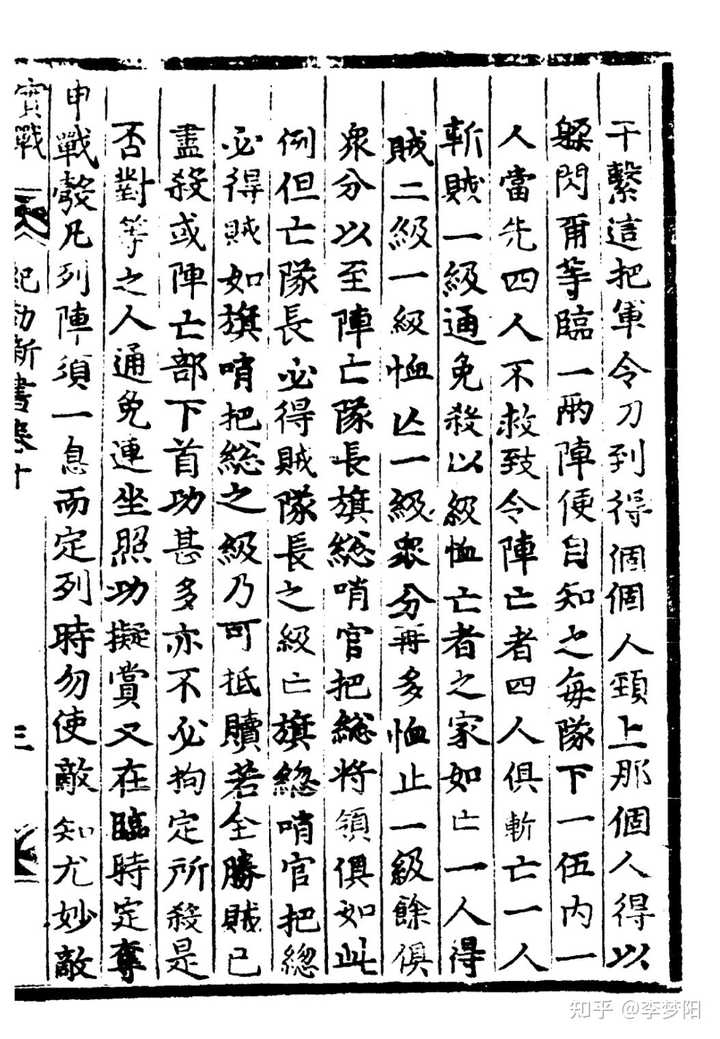 干繫這把軍令刀到得個個人頸上那個人得以
躱閃爾等臨一兩陣便自知之每隊下一伍內一
人當先四人不救致令陣亡者四人俱斬亡一人
斬賊一級通免殺以級恤亡者之家如亡一人得
賊二級一級恤亾一級衆分再多恤止一級餘俱
衆分以至陣亡隊長旗總哨官把總將領俱如此
例但亡隊長必得賊隊長之級亡旗總哨官把總
必得賊如旗哨把総之級乃可抵贖若全勝賊已
盡殺或陣亡部下首功甚多亦不必拘定所殺是
否對等之人通免連坐照功擬賞又在臨時定奪
申戰彀凡列陣須一息而定列時勿使敵知尤妙敵
實戰 紀効新書卷十 三
知乎 @李梦阳